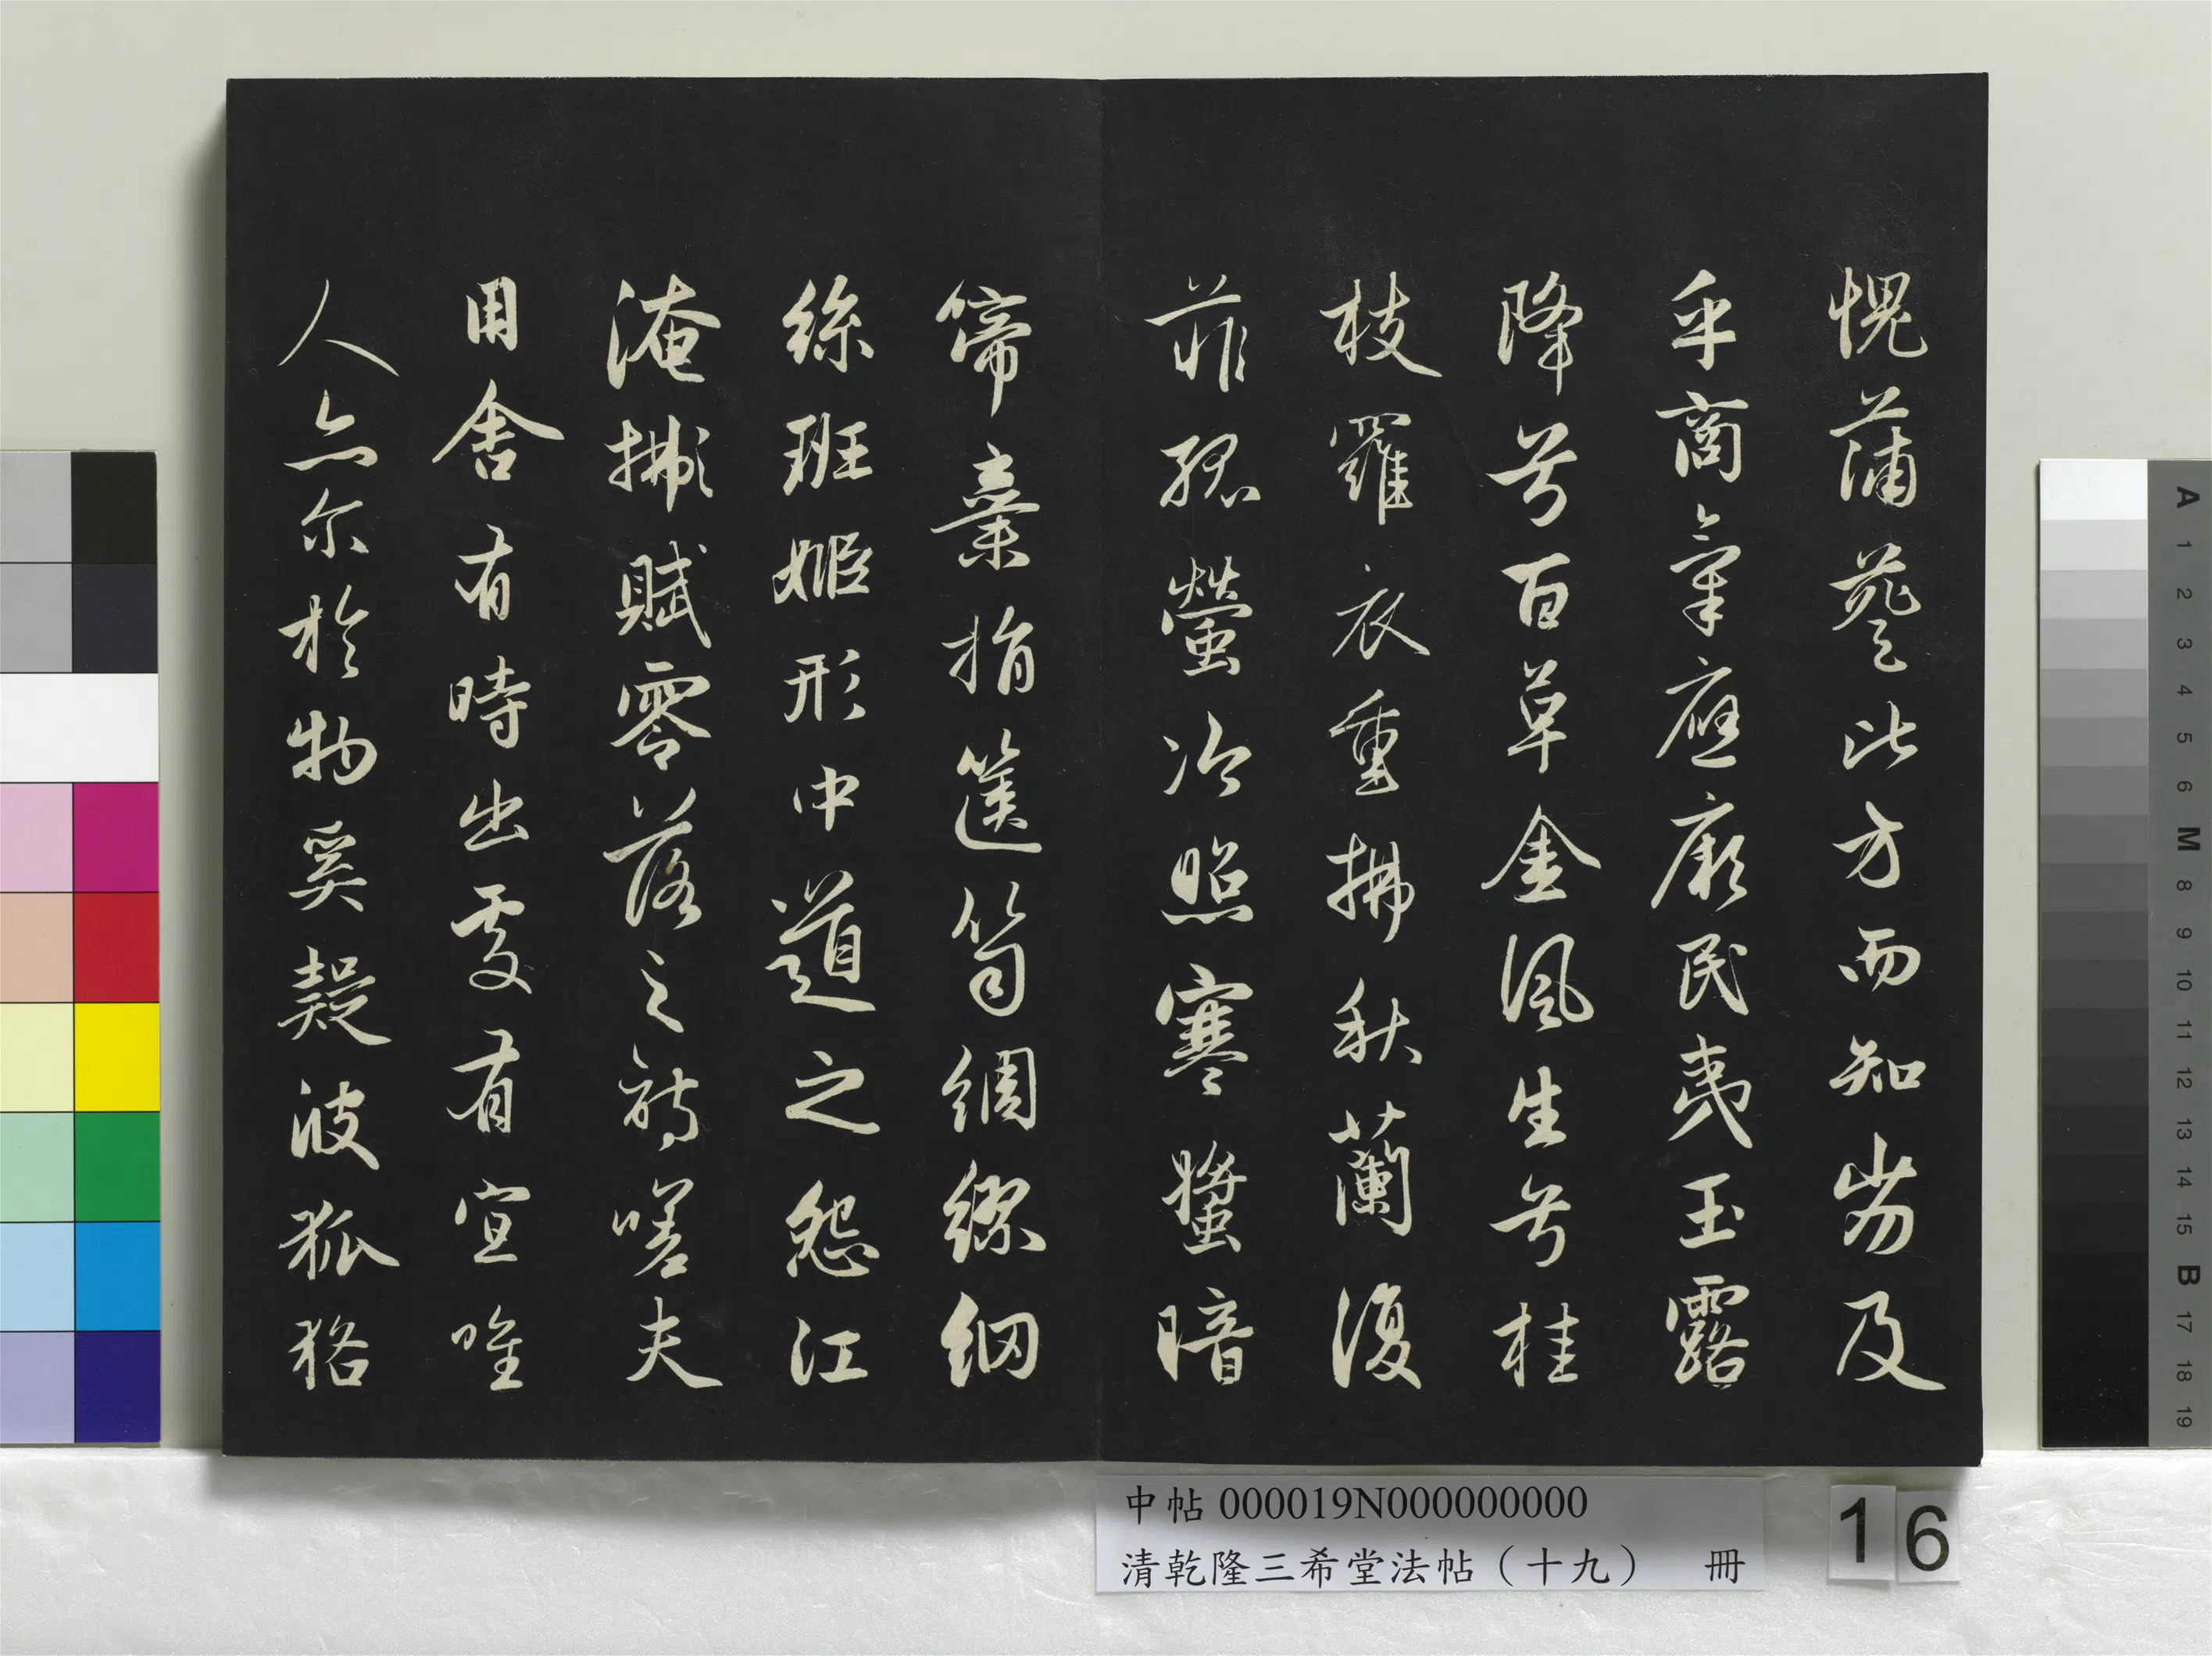 愧蒲葵比方而知劣及
乎商氣應厥民夷玉露
降兮百草金風生兮桂
枝羅衣重拂秋蘭復
菲孤螢冷照寒螿暗
啼棄捐篋笥綢繆網
絲班姬形中道之怨江
淹賦零落之詩嗟夫
用舍有時出處有宜唯
人亦尔於物奚疑彼狐狢
中帖 000019N000000000
清乾隆三希堂法帖（十九） 冊
16
A 1 2 3 4 5 6 M 8 9 10 11 12 13 14 15 B 17 18 19